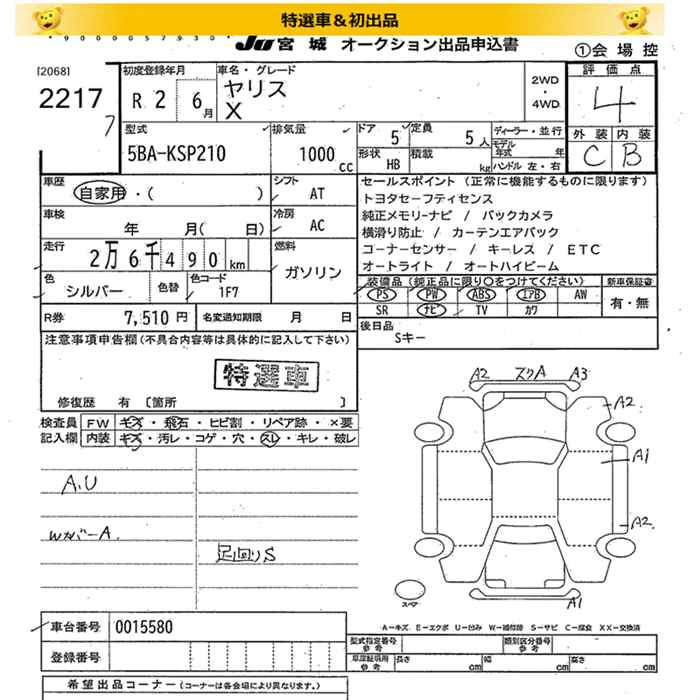 特選車&初出品
*9000057930*
JU 宮城 オークション出品申込書
①会場控
[2068]
2217
7
初度登録年月
R 2 6月
車名・グレード
ヤリス
X
2WD
・
4WD
評価点
4
外装 内装
C B
型式
5BA-KSP210
排気量
1000 cc
ドア 5
定員 5人
形状 HB
積載 kg
ディーラー・並行
モデル年式 年
ハンドル 左・右
車歴
自家用・( )
シフト
AT
車検
年 月( 日)
冷房
AC
走行
2万6千490km
燃料
ガソリン
色
シルバー
色替
色コード
1F7
R券
7,510円
名変通知期限 月 日
セールスポイント (正常に機能するものに限ります)
トヨタセーフティセンス
純正メモリーナビ / バックカメラ
横滑り防止 / カーテンエアバック
コーナーセンサー / キーレス / ETC
オートライト / オートハイビーム
装備品 (純正品に限り○をつけてください)
新車保証書
PS PW ABS エアB AW
SR ナビ TV カワ
有・無
後日品
Sキー
注意事項申告欄(不具合内容等は具体的に記入して下さい)
特選車
修復歴 有 〔箇所 〕
検査員記入欄
FW キズ・飛石・ヒビ割・リペア跡・×要
内装 キズ・汚レ・コゲ・穴・スレ・キレ・破レ
A,U
Wカバー A
足回りS
A2 スリA A3
A2
A1
A2
A1
スペア
A−キズ E−エクボ U−凹み W−補修跡 S−サビ C−腐食 XX−交換済
車台番号 0015580
登録番号
cm cm cm
型式指定番号 参考
類別区分番号 参考
車庫証明用 参考
長さ cm 幅 cm 高さ cm
希望出品コーナー (コーナーは各会場により異なります。)